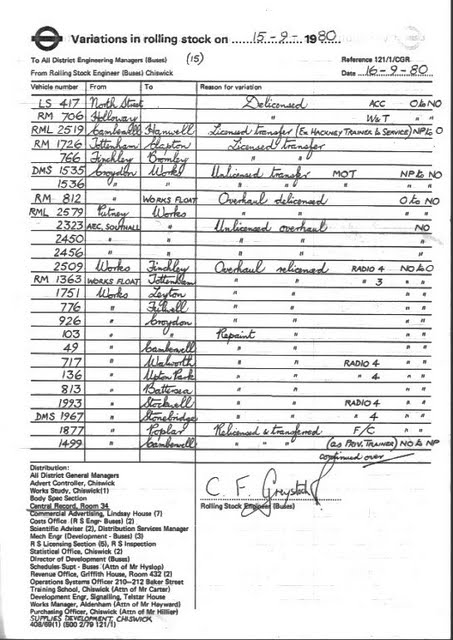 Variations in rolling stock on 15-9-1980
To All District Engineering Managers (Buses) (15) Reference 121/1/CGR
From Rolling Stock Engineer (Buses) Chiswick Date 16-9-80
Vehicle number From To Reason for variation
LS 417 North Street Delicensed ACC O to NO
RM 706 Holloway " W&T " "
RML 2519 Camberwell Hanwell Licensed transfer (Ex HACKNEY TRAINER to SERVICE) NP to O
RM 1726 Tottenham Clapton Licensed transfer
766 Finchley Bromley " "
DMS 1535 Croydon Works Unlicensed transfer MOT NP to NO
1536 " " " " " " "
RM 812 " WORKS FLOAT Overhaul delicensed O to NO
RML 2579 Putney Works " " " "
2323 AEC, SOUTHALL " Unlicensed overhaul NO
2450 " " " " "
2456 " " " " "
2509 Works Finchley Overhaul relicensed RADIO 4 NO to O
RM 1363 WORKS FLOAT Tottenham " " " 3 " "
1751 Works Leyton " " " "
776 " Fulwell " " " "
926 " Croydon " " " "
103 " " Repaint " " "
49 " Camberwell " " " "
717 " Walworth " " RADIO 4 " "
136 " Upton Park " " " 4 " "
813 " Battersea " " " "
1993 " Stockwell " " RADIO 4 " "
DMS 1967 " Stonebridge " " " 4 " "
1877 " Poplar Relicensed & transferred F/C " "
1499 " Camberwell " " " (as PROV. TRAINER) NO to NP
confirmed over
Distribution:
All District General Managers
Advert Controller, Chiswick
Works Study, Chiswick(1)
Body Spec Section
Central Record, Room 34
Commercial Advertising, Lindsay House (7)
Costs Office (R S Engr- Buses) (2)
Scientific Adviser (2), Distribution Services Manager
Mech Engr (Development - Buses) (3)
R S Licensing Section (5), R S Inspection
Statistical Office, Chiswick (2)
Director of Development (Buses)
Schedules Supt - Buses (Attn of Mr Hyslop)
Revenue Office, Griffith House, Room 432 (2)
Operations Systems Officer 210–212 Baker Street
Training School, Chiswick (Attn of Mr Carter)
Development Engr, Signalling, Telstar House
Works Manager, Aldenham (Attn of Mr Hayward)
Purchasing Officer, Chiswick (Attn of Mr Hillier)
SUPPLIES DEVELOPMENT, CHISWICK
408/69(1) (500 2/79 121/1)
C. F. Greystock
Rolling Stock Engineer (Buses)